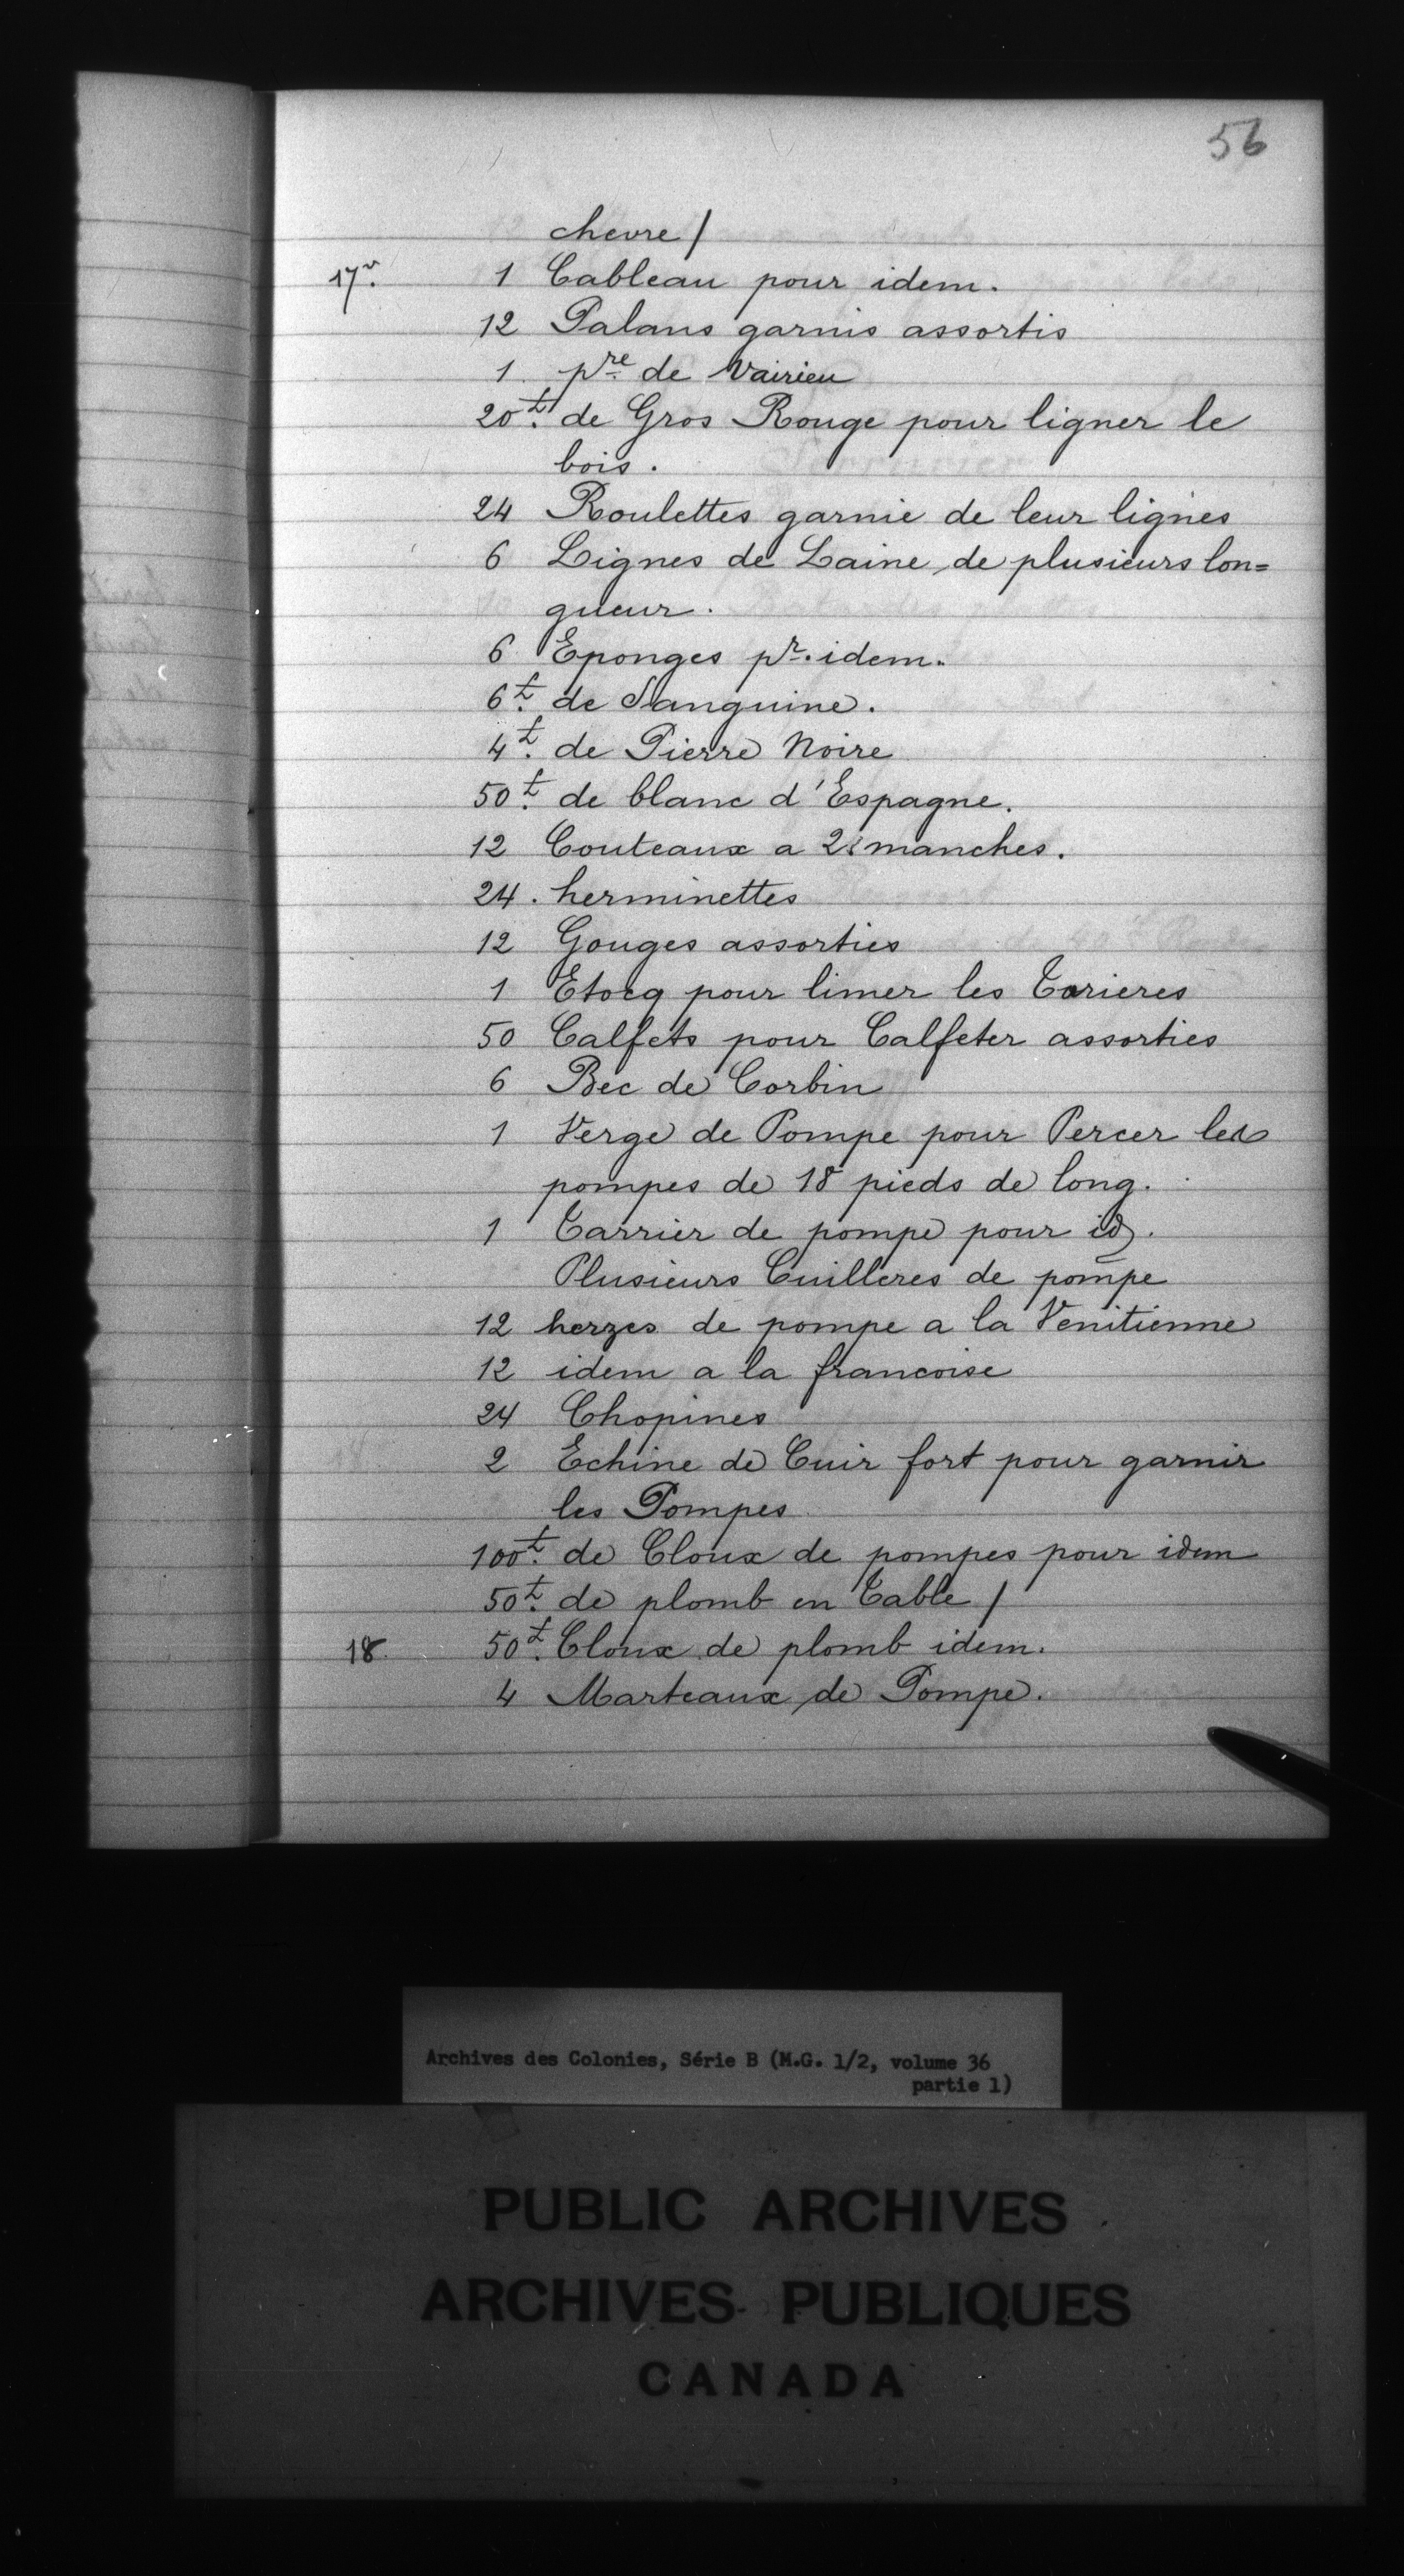 56
chevre /
17v. 1 Cableau pour idem.
12 Palans garnis assortis
1. pre de Vairieu
20 ₶. de Gros Rouge pour ligner le
bois.
24 Roulettes garnie de leur lignes
6 Lignes de Laine de plusieurs lon=
gueur.
6 Eponges pr. idem.
6 ₶. de Sanguine.
4 ₶. de Pierre Noire
50 ₶. de blanc d'Espagne.
12 Couteaux a 2 manches.
24. herminettes
12 Gouges assorties
1 Etocq pour limer les Tarieres
50 Calfets pour Calfeter assorties
6 Bec de Corbin
1 Verge de Pompe pour Percer les
pompes de 18 pieds de long.
1 Tarrier de pompe pour id.
Plusieurs Cuilleres de pompe
12 herzes de pompe a la Venitienne
12 idem a la francoise
24 Chopines
2 Echine de Cuir fort pour garnir
les Pompes
100 ₶. de Cloux de pompes pour idem
50 ₶. de plomb en Table /
18. 50 ₶. Cloux de plomb idem.
4 Marteaux de Pompe.
Archives des Colonies, Série B (M.G. 1/2, volume 36
partie 1)
PUBLIC ARCHIVES
ARCHIVES PUBLIQUES
CANADA